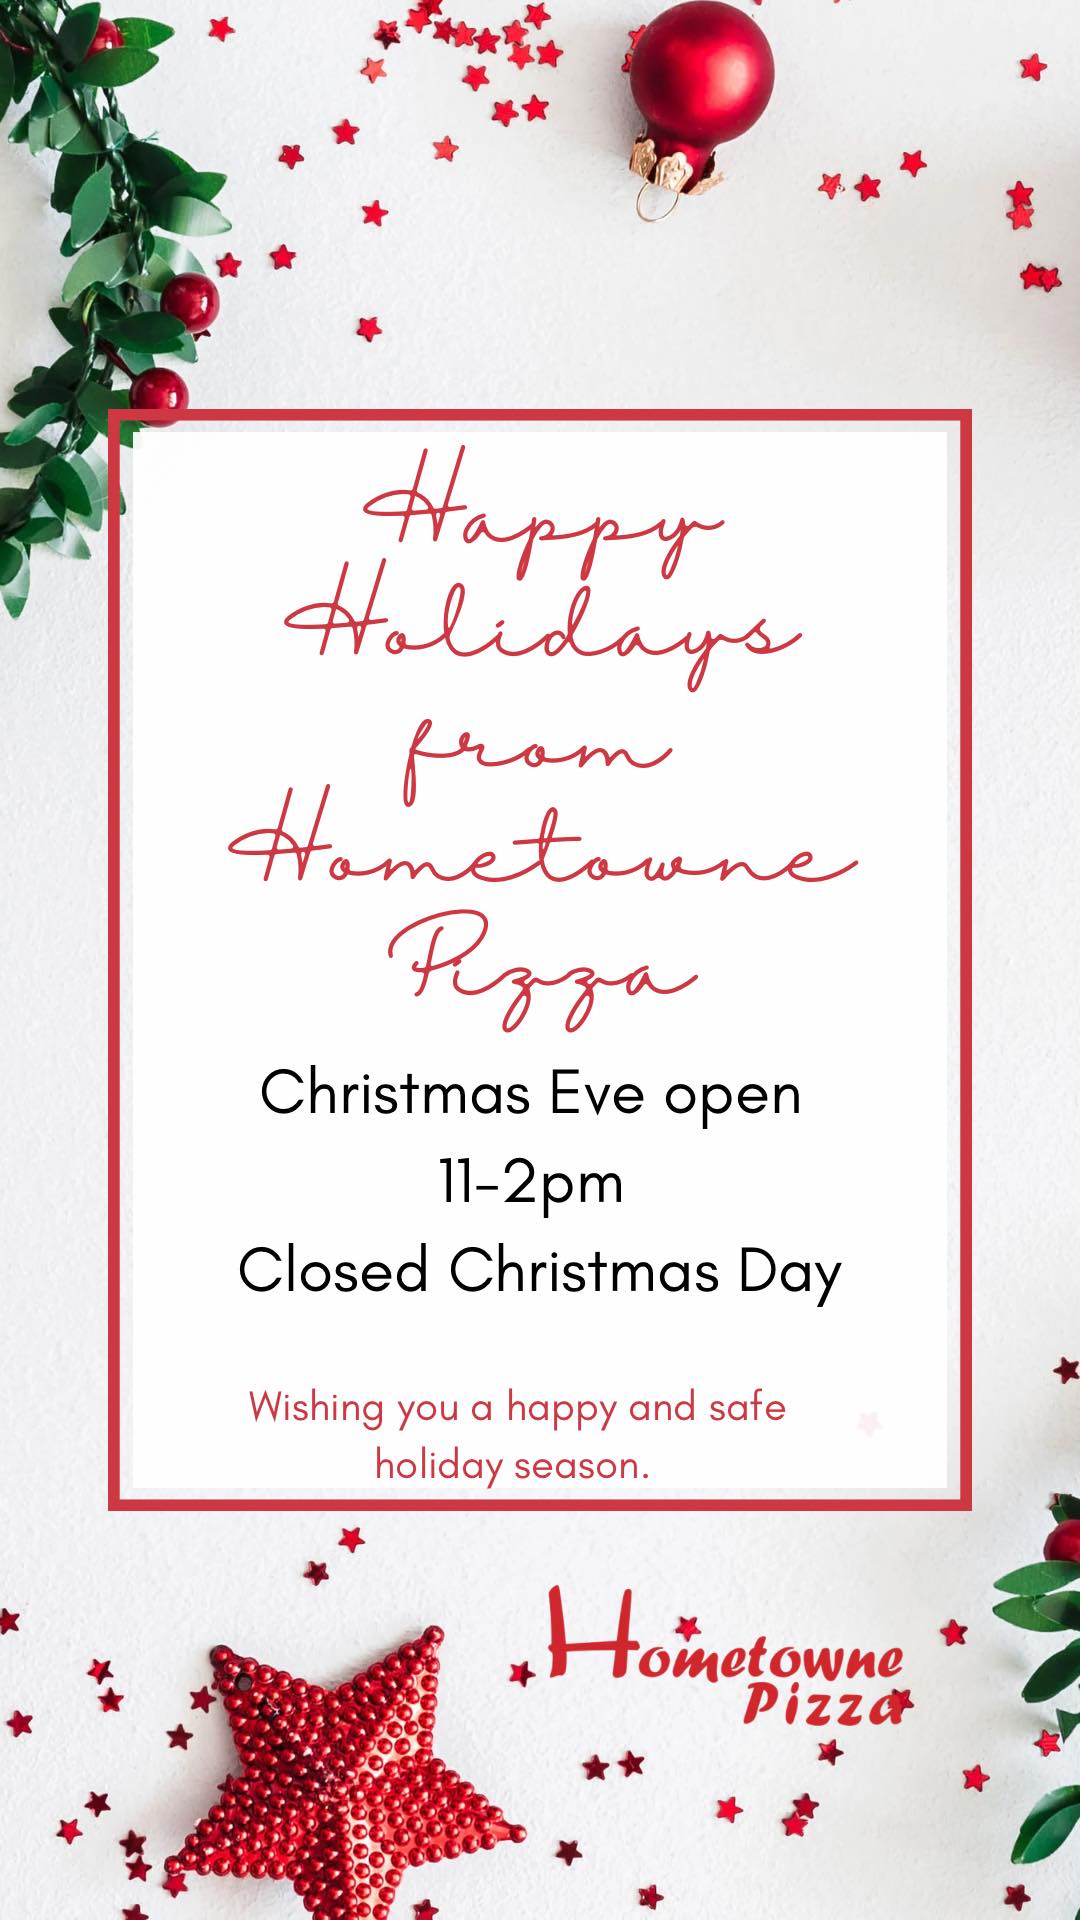 Happy
Holidays
from
Hometowne
Pizza
Christmas Eve open
11-2pm
Closed Christmas Day
Wishing you a happy and safe
holiday season.
Hometowne
Pizza